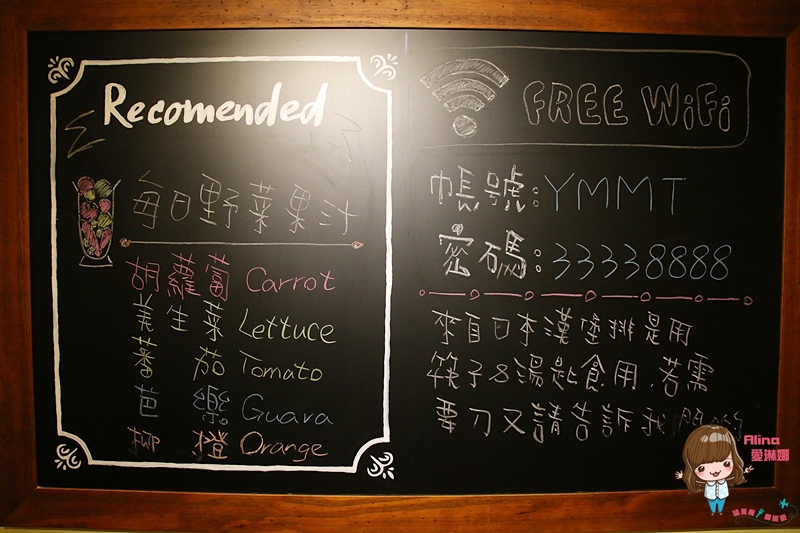 Recomended
每日野菜果汁
胡蘿蔔 Carrot
美生菜 Lettuce
蕃茄 Tomato
芭樂 Guava
柳橙 Orange
FREE WiFi
帳號:YMMT
密碼:33338888
來自日本漢堡排是用
筷子&湯匙食用.若需
要刀叉請告訴我們喲
Alina
愛琳娜